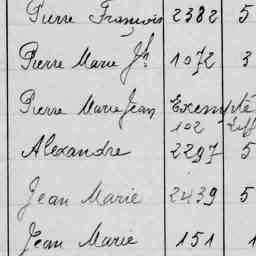 Pierre François 2382 5
Pierre Marie Jh 1072 3
Pierre Marie Jean Exempté
102
Alexandre 2297 5
Jean Marie 2439 5
Jean Marie 151 1